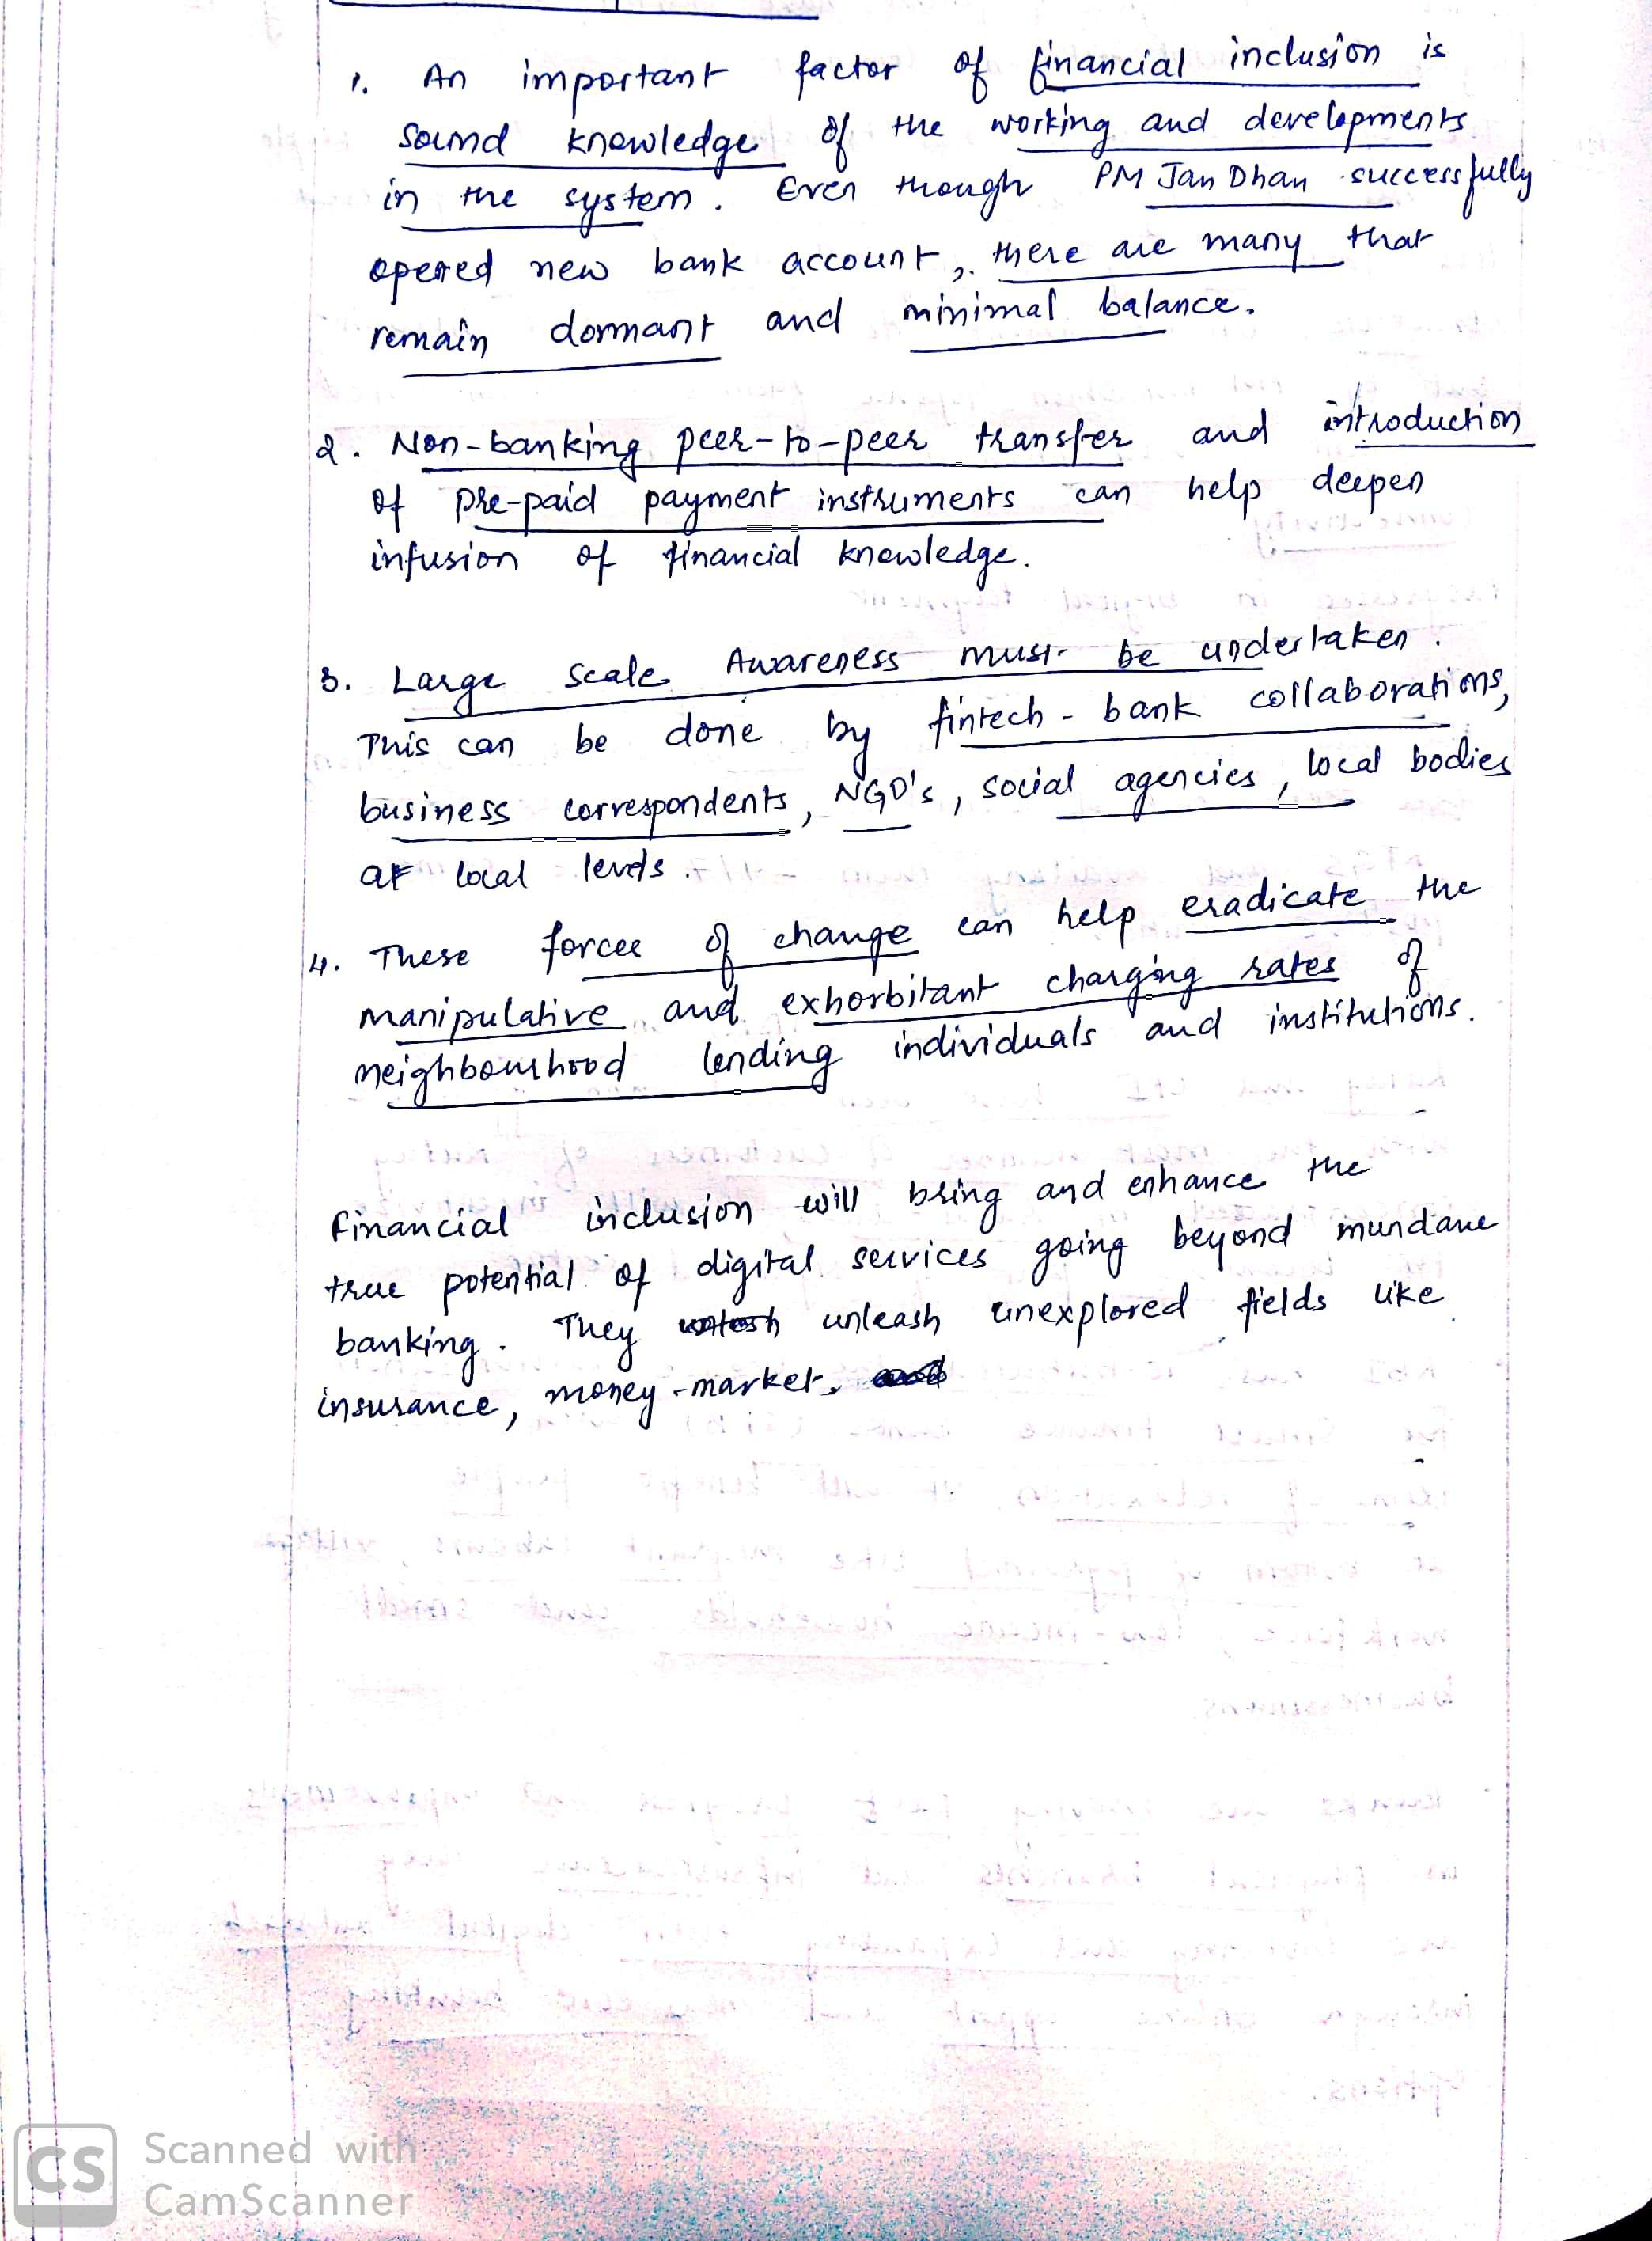 1. An important factor of financial inclusion is
sound knowledge of the working and developments
in the system. Even though PM Jan Dhan successfully
opened new bank account, there are many that
remain dormant and minimal balance.
2. Non-banking peer-to-peer transfer and introduction
of pre-paid payment instruments can help deepen
infusion of financial knowledge.
3. Large scale Awareness must be undertaken.
This can be done by fintech - bank collaborations,
business correspondents, NGO's, social agencies, local bodies
at local levels.
4. These forces of change can help eradicate the
manipulative and exhorbitant charging rates of
neighbourhood lending individuals and institutions.
Financial inclusion will bring and enhance the
true potential of digital services going beyond mundane
banking. They unleash unexplored fields like
insurance, money-market.
CS Scanned with
CamScanner